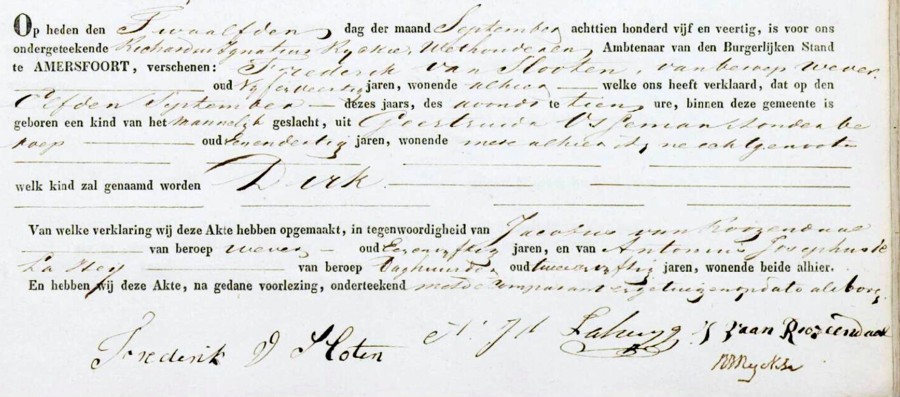 Op heden den Twaalfden dag der maand September achttien honderd vijf en veertig, is voor ons
ondergeteekende Richardus Ignatius Rycksz Wethouder en Ambtenaar van den Burgerlijken Stand
te AMERSFOORT, verschenen: Frederik van Slooten, van beroep wever
oud Vijfenveertig jaren, wonende alhier welke ons heeft verklaard, dat op den
Elfden September dezes jaars, des avonds te tien ure, binnen deze gemeente is
geboren een kind van het mannelijk geslacht, uit Geertruida zonder be
roep oud jaren, wonende mede alhier zijne echtgenoote
welk kind zal genaamd worden Dirk
Van welke verklaring wij deze Akte hebben opgemaakt, in tegenwoordigheid van Jacobus van Roozendaal
van beroep wever oud Eenenvijftig jaren, en van Antonius Josephus
La Hey van beroep Daghuurder oud tweeenvijftig jaren, wonende beide alhier.
En hebben wij deze Akte, na gedane voorlezing, onderteekend met de comparant en getuigen op dato als boven
Frederik V Sloten
J vaan Roozendaal
RIRycksz